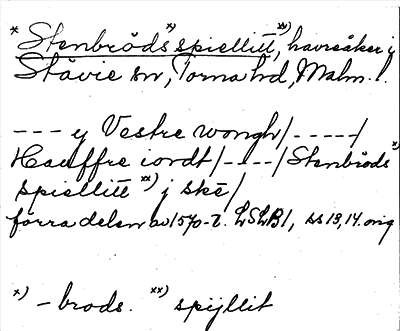 * Stenbröds *) spiellitt, **) havreåker i
Stävie sn, Torna hd, Malm. l.
--- y Vestre wongh/-----/
Hauffre iordt/----/Stenbröds *)
spiellitt **) j skë/
förra delen av 1570-t. LSLB1, ss 13, 14. orig
*) -brods. **) spijllit